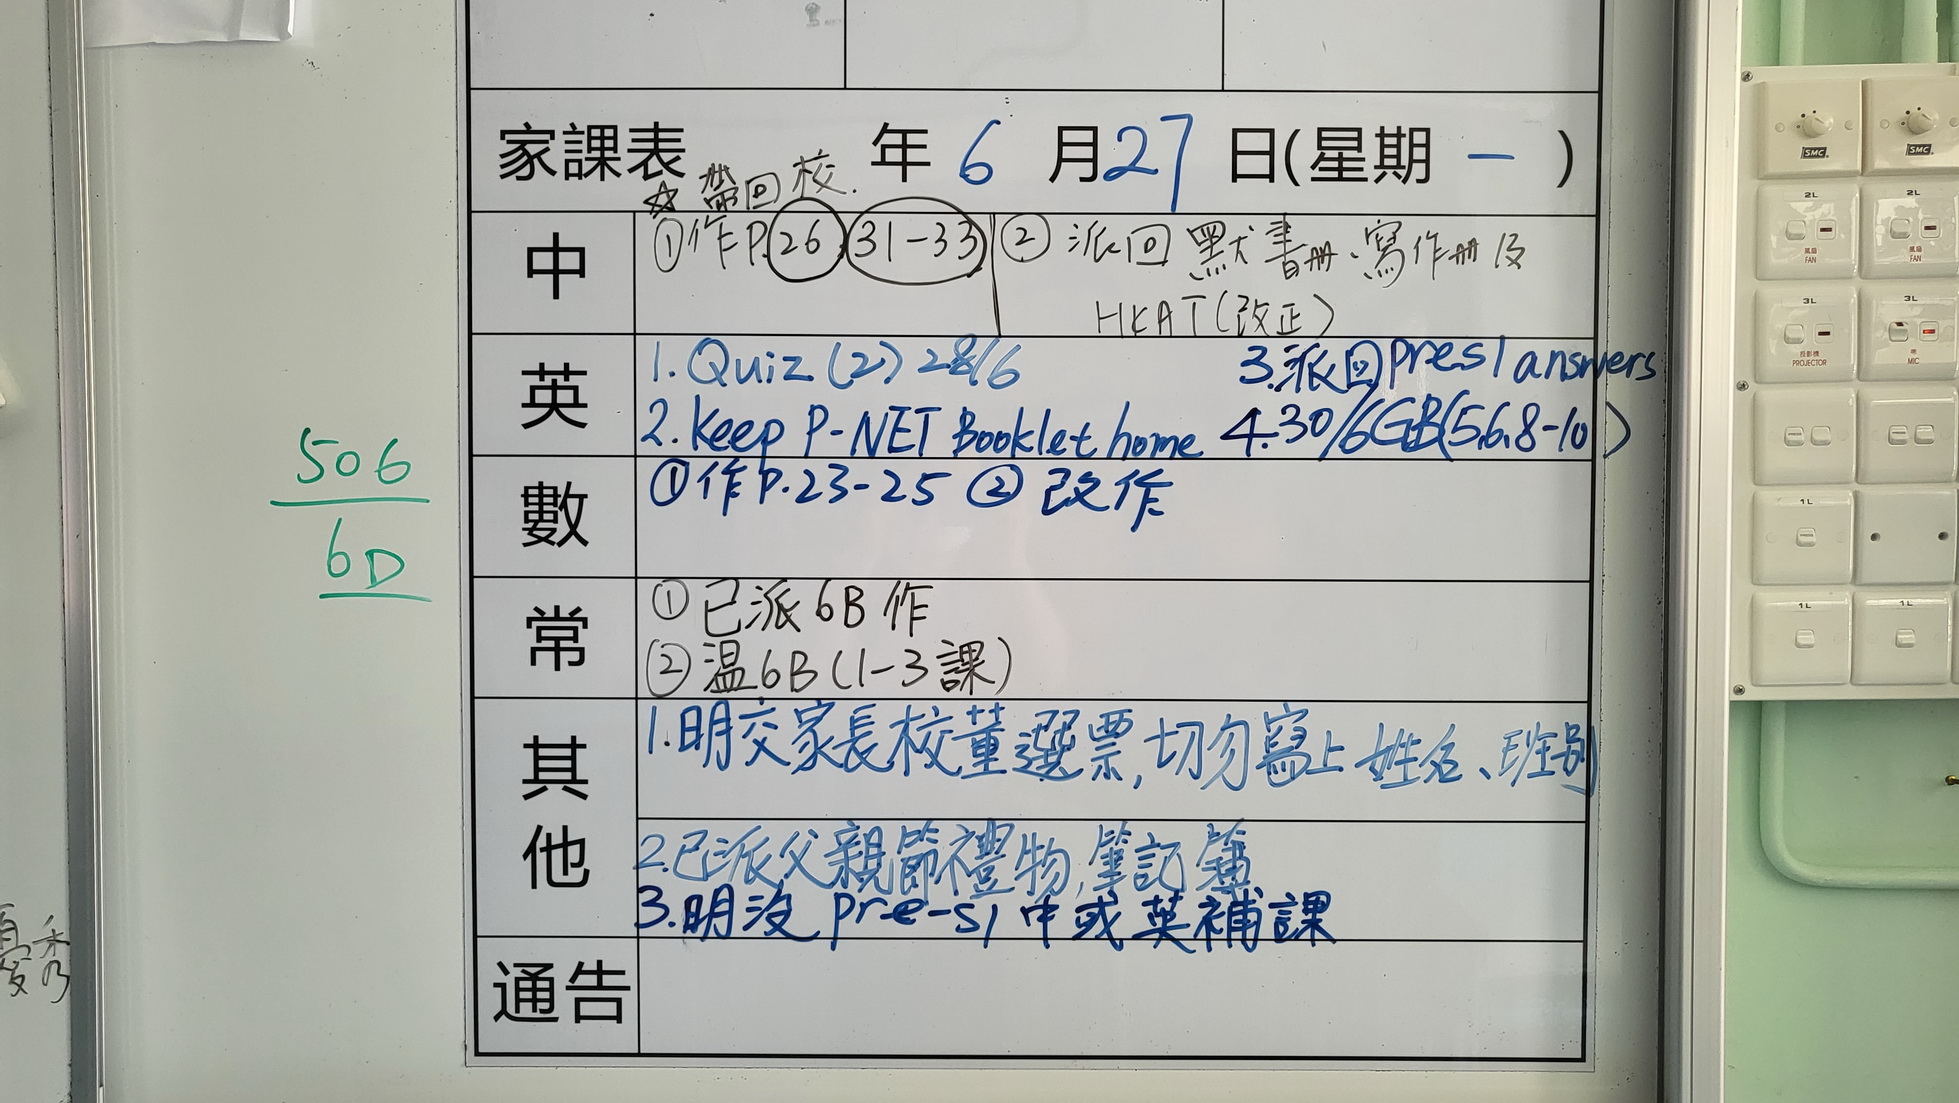 家課表 年 6 月 27 日(星期 一 )
☆帶回校.
中
①作P.26 31-33 ② 派回 默書冊、寫作冊及
HKAT(改正)
英
1. Quiz (2) 28/6 3.派回pres1 answers
2. Keep P-NET Booklet home 4.30/6GB(5,6,8-10)
數
①作P.23-25 ② 改作
常
①已派6B作
②温6B(1-3課)
其他
1.明交家長校董選票,切勿寫上姓名、班別
2.已派父親節禮物,筆記簿
3.明沒pre-s1中或英補課
通告
506
6D
SMC SMC
2L 2L
風扇 風扇
FAN FAN
3L 3L
投影機
PROJECTOR MIC
1L
1L 1L